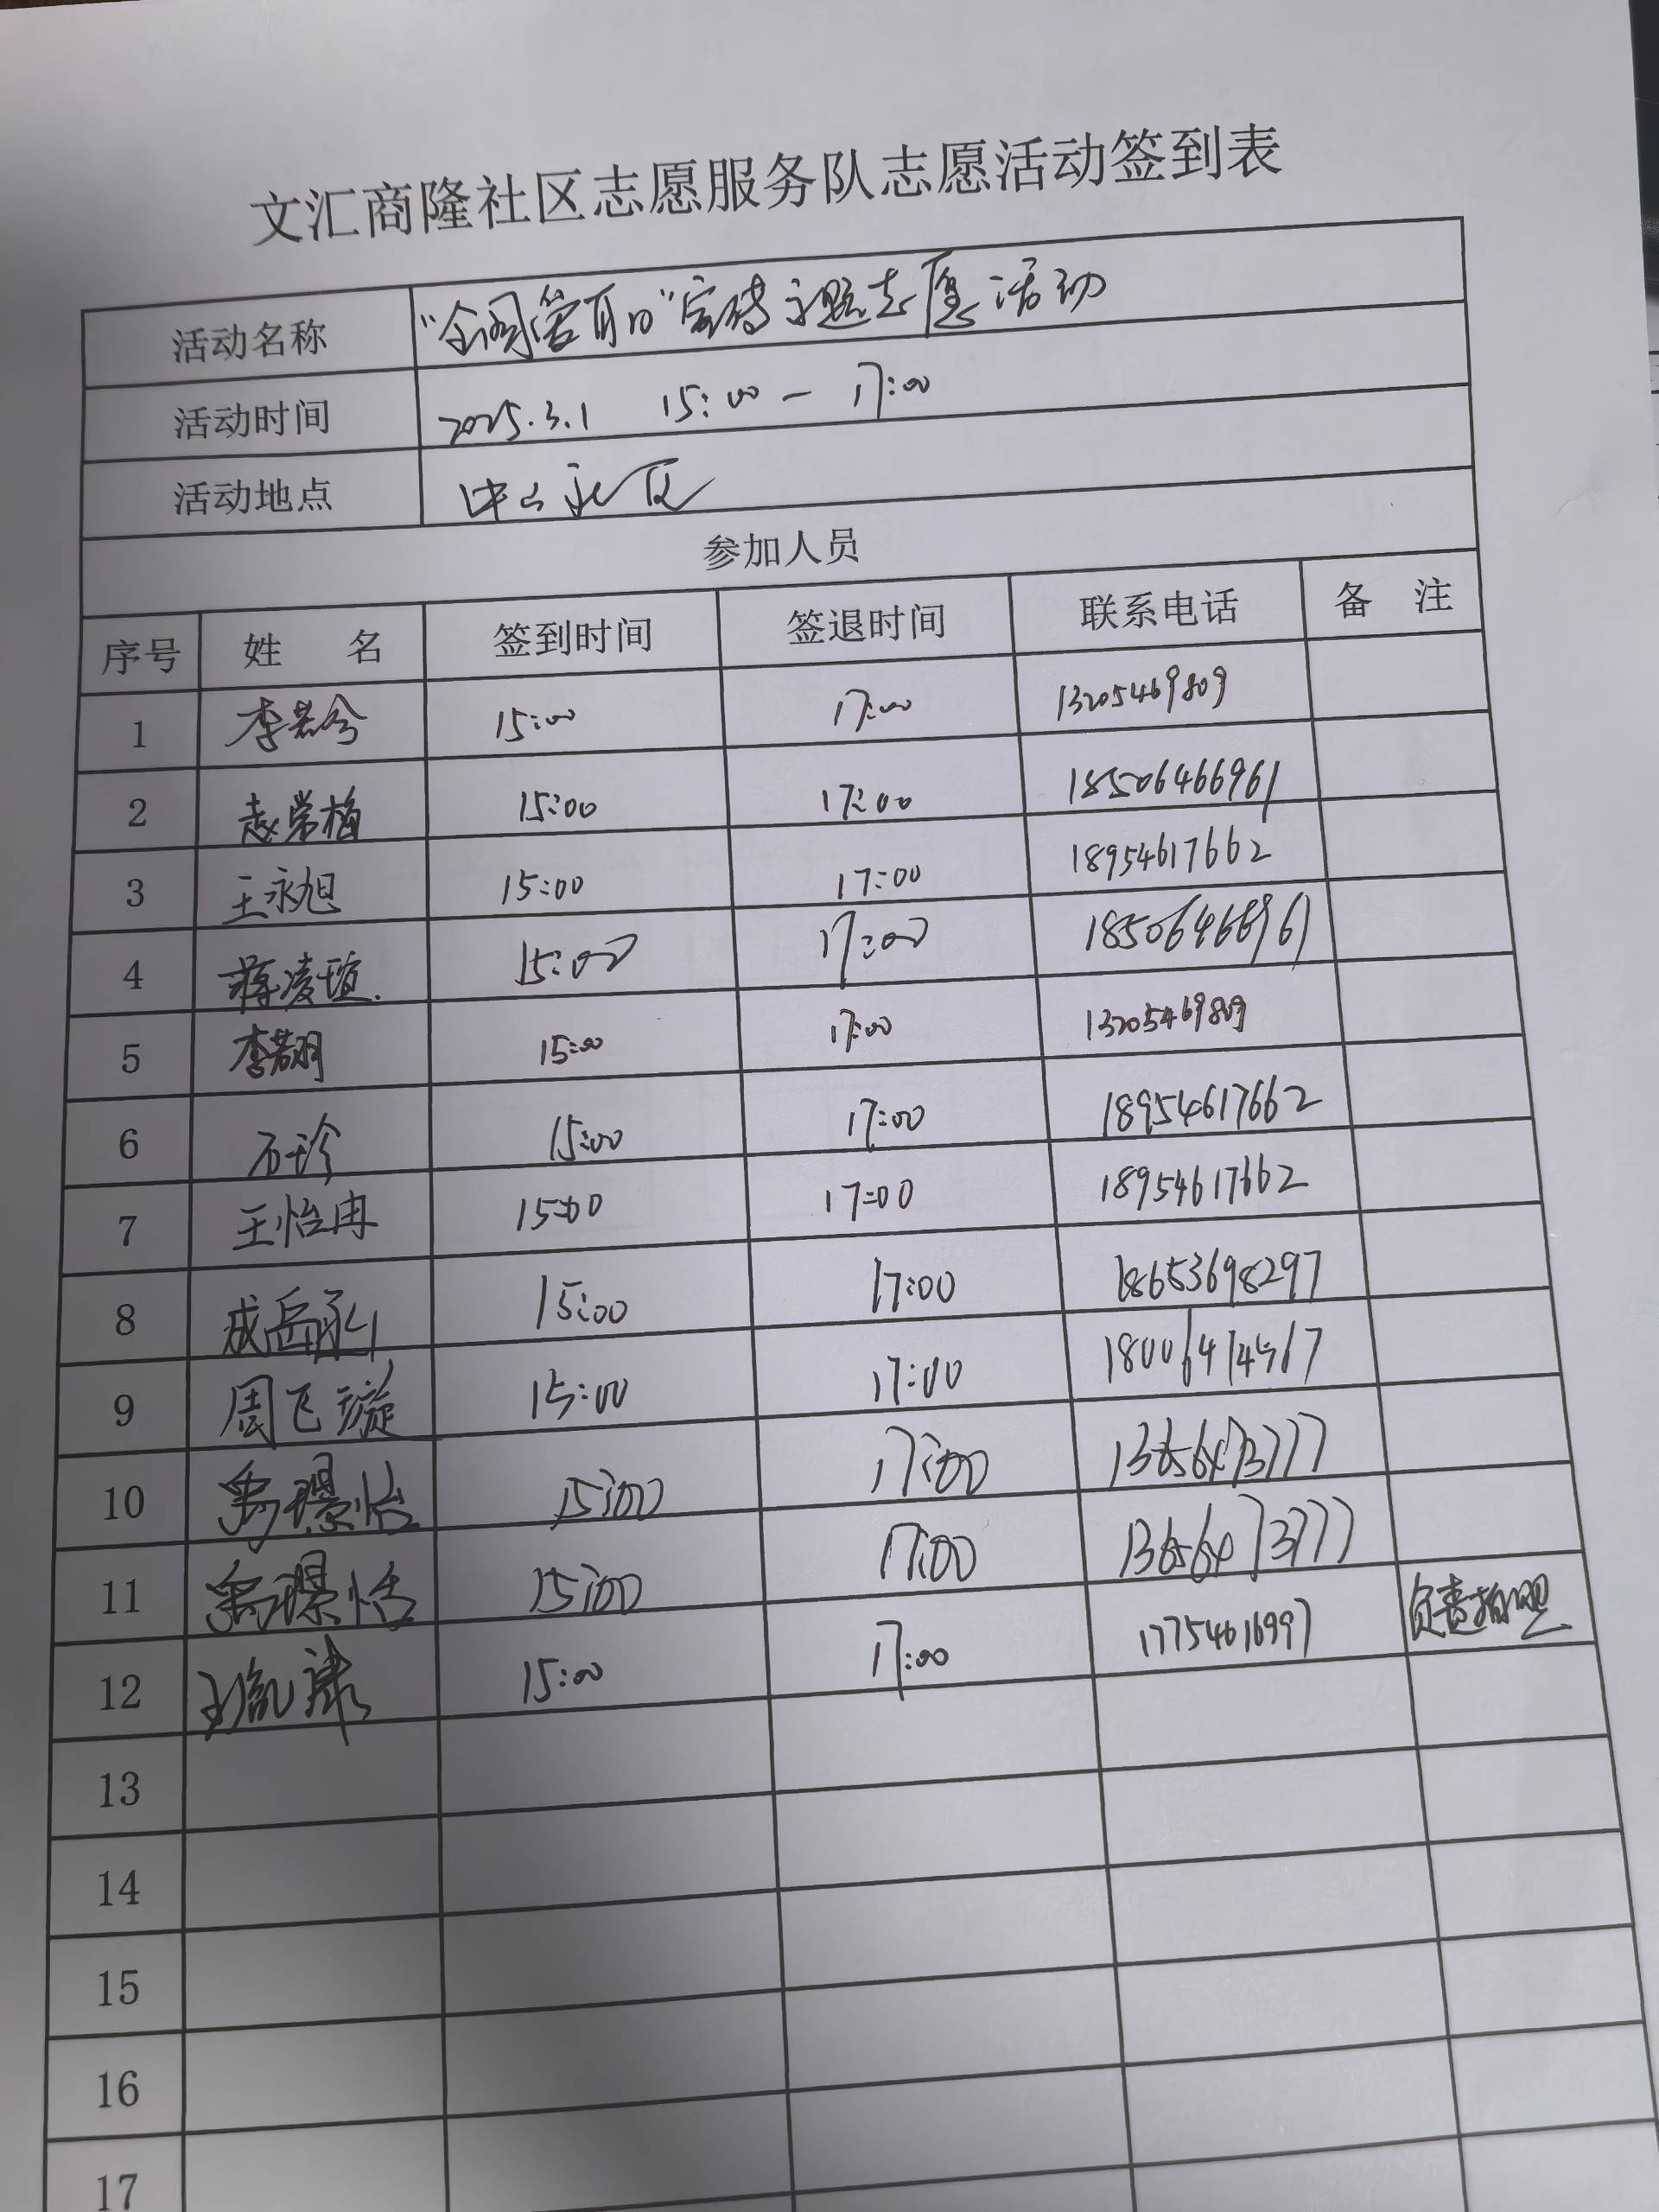 文汇商隆社区志愿服务队志愿活动签到表
活动名称 宣传主题志愿活动
活动时间 2025.3.1 15:00-17:00
活动地点
参加人员
序号 姓 名 签到时间 签退时间 联系电话 备 注
1 李若兮 15:00 17:00 13205469809
2 赵常梅 15:00 17:00 18506466961
3 王永旭 15:00 17:00 18954617662
4 蒋凌瑄 15:00 17:00 18506466961
5 李若玥 15:00 17:00 13205469809
6 石珍 15:00 17:00 18954617662
7 王怡冉 15:00 17:00 18954617662
8 成岳 15:00 17:00 18653698297
9 周飞璇 15:00 17:00
10 禹璟怡 15:00 17:00
11 禹璟恬 15:00 17:00
12 15:00 17:00 17754616997 负责拍照
13
14
15
16
17